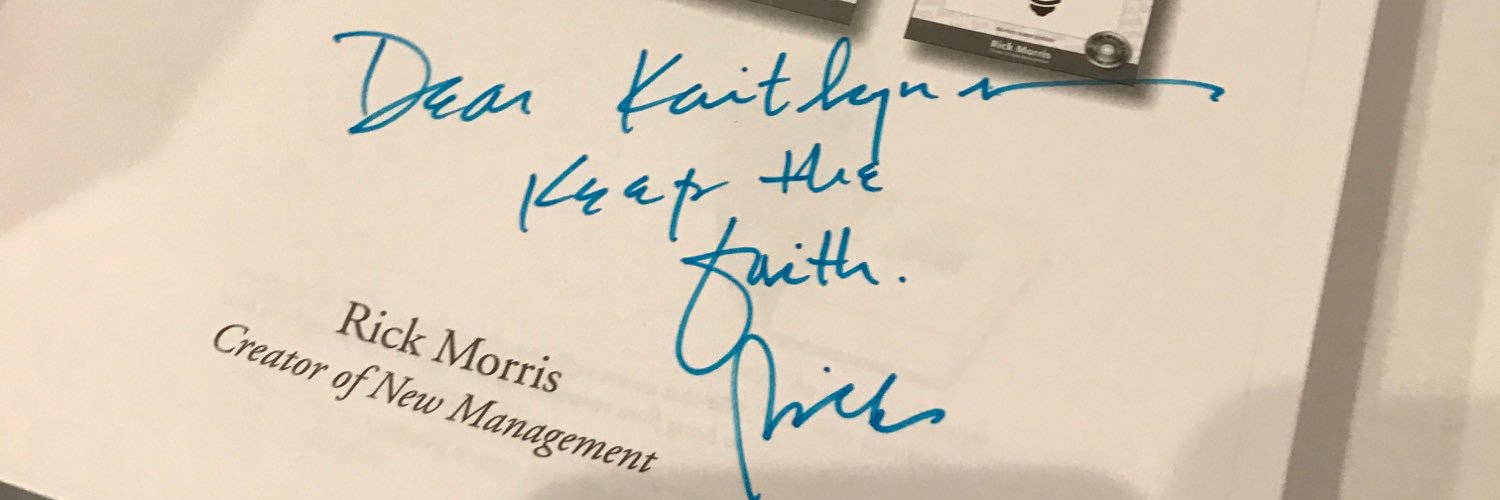 Rick Morris
Dear Kaitlynn
Keep the
faith.
Rick
Rick Morris
Creator of New Management